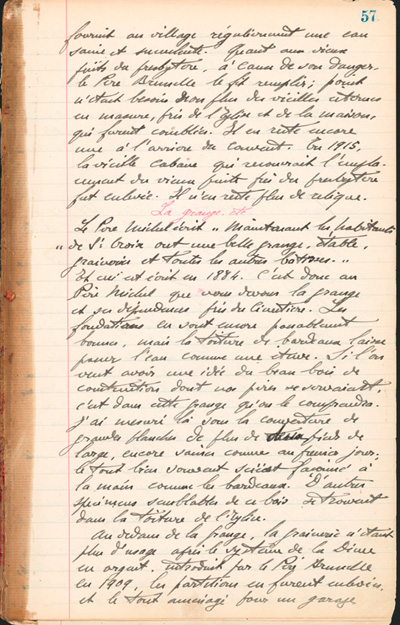 57
fournit au village régulièrement une eau
saine et succulente. Quant aux vieux
puits du presbytère, à cause de son danger
le Père Brunelle le fit remplir; point
n'était besoin non plus des vieilles citernes
en masure, près de l'Église et de la maison,
qui furent comblées. Il en reste encore
une à l'arrière du couvent. En 1915,
la vieille cabane qui recouvrait l'empla-
cement du vieux puits près du presbytère
fut enlevée. Il n'en reste plus de relique.
La grange. Etc
Le Père Michel écrit „ Maintenant les habitants
„ de St Croix ont une belle grange, étable,
graineries et toutes les autres bâtisses. „
Et ceci est écrit en 1884. C'est donc au
Père Michel que nous devons la grange
et ses dépendances près du cimetière. Les
fondations en sont encore passablement
bonnes, mais la toiture de bardeaux laisse
passer l'eau comme une
Si l'on
veut avoir une idée du beau bois de
construction dont nos pères se servaient,
c'est dans cette grange qu'on le comprendra.
J'ai mesuré là sous la couverture de
grandes planches de plus de pieds de
large, encore saines comme au premier jour;
le tout bien souvent scié et façonné à
la main comme les bardeaux. D'autres
spécimens semblables de ce bois se trouvait
dans la toiture de l'Église.
Au dedans de la grange, la grainerie n'étant
plus d'usage après le système de la Dîme
en argent, introduit par le Père Brunelle
en 1909, les partitions en furent enlevées,
et le tout aménagé pour un garage